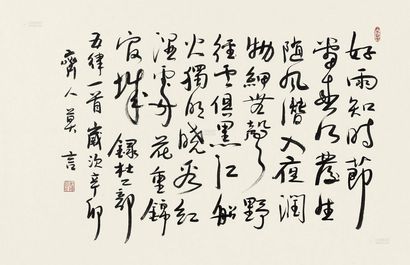 好雨知時節
當春乃發生
随風潛入夜潤
物細無聲野
徑雲俱黑江船
火獨明曉看紅
濕處花重錦
官城 録杜工部
五律一首歲次辛卯
齊人莫言